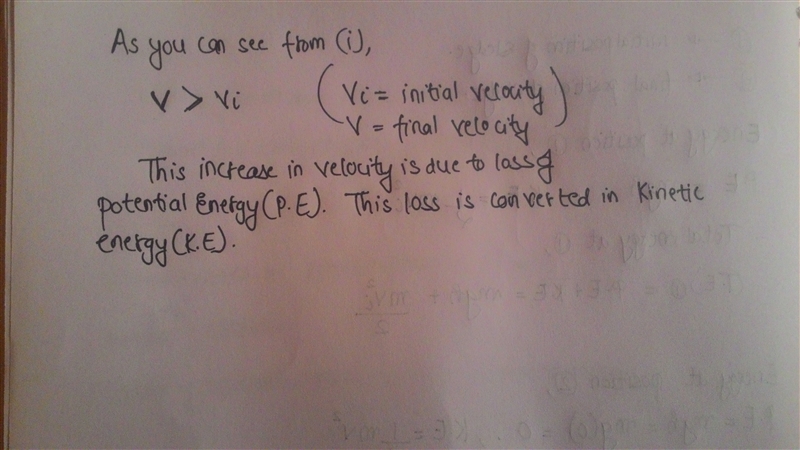 As you can see from (i),
v > vi ( vi = initial velocity
v = final velocity )
This increase in velocity is due to loss of
potential energy (P.E). This loss is converted in Kinetic
energy (K.E).